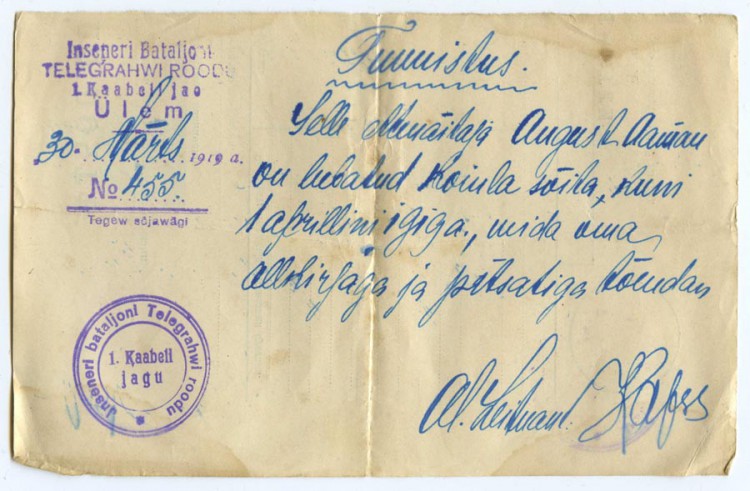 Inseneri Bataljoni
TELEGRAHWI ROODU
1. Kaabeli jao
Ülem
"30" Märts 1919 a.
№ 455
Tegew sõjawägi
Tunnistus.
Selle ettenäitaja August Aaman
on lubatud Koinla sõita, kuni
1 aprillini
mida oma
allkirjaga ja pitsatiga tõendan
Al. Leitnant
Inseneri bataljoni Telegrahwi roodu
1. Kaabeli
jagu